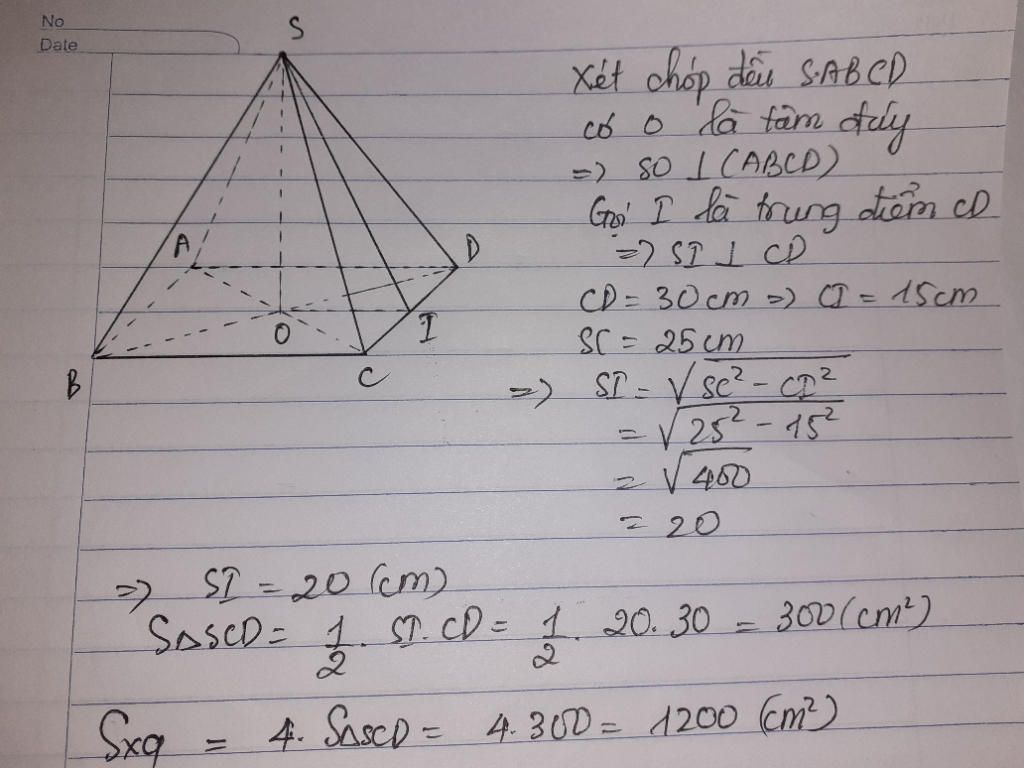 No
Date
S
A
D
O
I
B
C
Xét chóp đều S.ABCD
có O là tâm đáy
=> SO ⊥ (ABCD)
Gọi I là trung điểm CD
=> SI ⊥ CD
CD = 30 cm => CI = 15cm
SC = 25 cm
=> SI = √SC² - CI²
= √25² - 15²
= √400
= 20
=> SI = 20 (cm)
SΔSCD = 1/2 . SI. CD = 1/2 . 20. 30 = 300 (cm²)
Sxq = 4. SΔSCD = 4. 300 = 1200 (cm²)